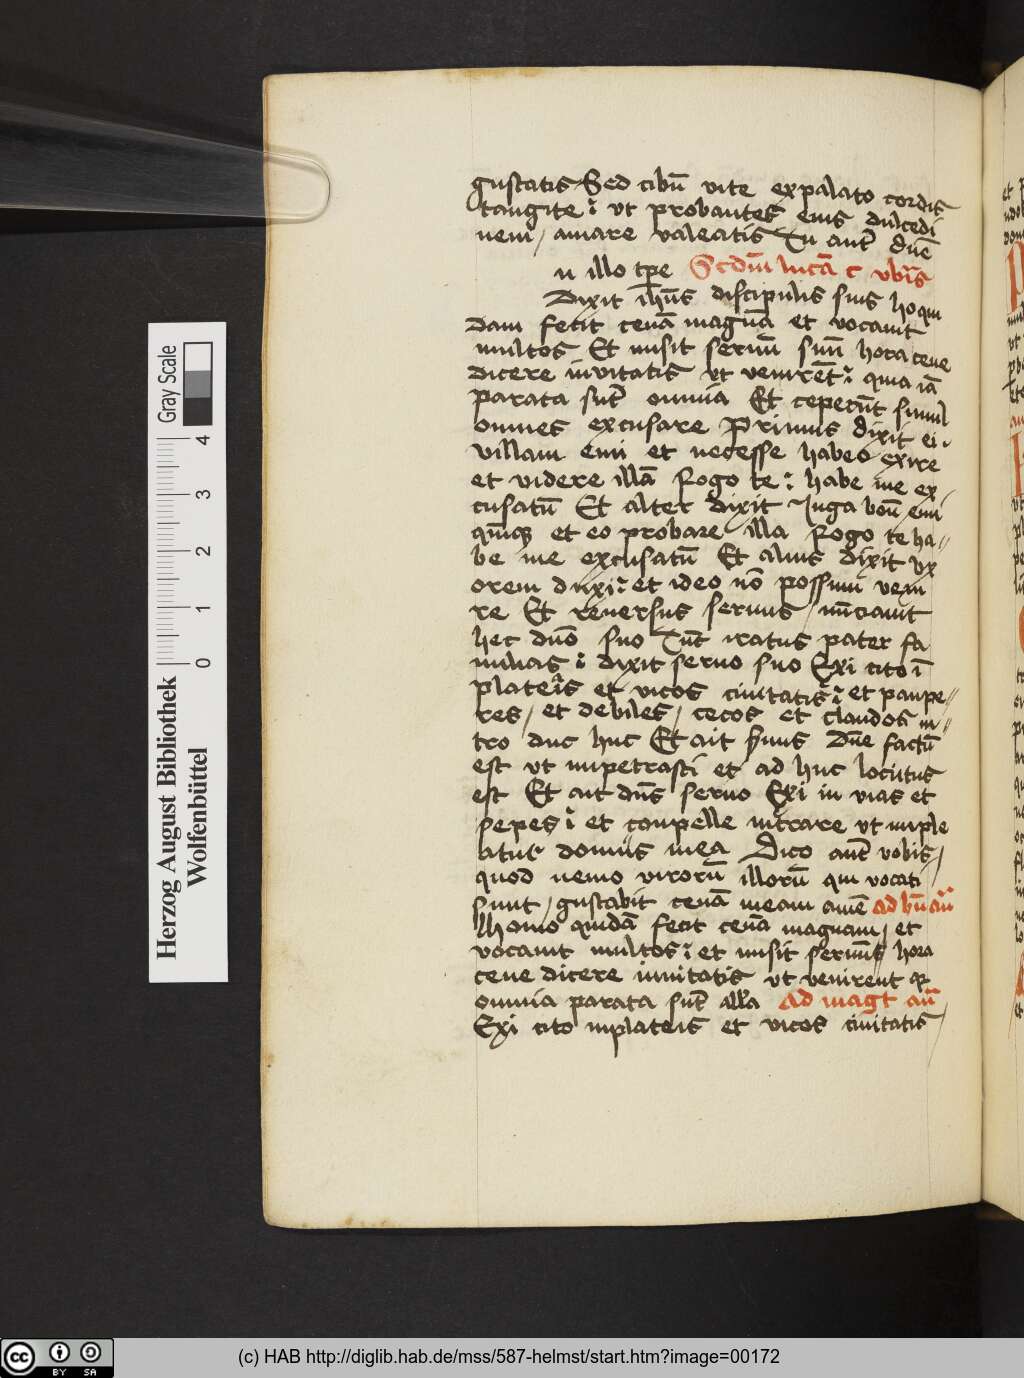 gustatis Sed cibū vite expalato cordis
tangite ut probantes eius dulcedi
nem / amare valeatis Tu aut̄ dn̄e
n illo tp̄e Scd̄m lucā c vbīs
Dixit ih̄us discipulis suis ho qui
dam fecit cenā magnā et vocauit
multos Et misit seruū suū hora cene
dicere invitatis ut venirēt quia iā
parata sūt omnia Et ceperūt simul
omnes excusare Primus dixit ei
villam emi et necesse habeo exire
et videre illā Rogo te : habe me ex
cusatū Et alter dixit Juga boū emi
qn̄iqꝫ et eo probare illa Rogo te ha//
be me excusatū Et alius dixit ux
orem duxi : et ideo nō possum veni
re Et reuersus seruus nūciauit
hec dn̄o suo Tūc iratus pater fa
milias : dixit seruo suo Exi cito ī
plateās et vicos ciuitatis : et paupe//
res / et debiles / cecos et claudos in//
tro duc huc Et ait s̄uus Dn̄e factū
est ut imperasti et ad huc locūtus
est Et ait dn̄s seruo Exi in vias et
sepes : et compelle intrare ut imple
atur domus mea Dico aut̄ vobis /
quod nemo virorū illorū qui vocati
sunt / gustabit cenā meam amē ad bn̄ an̄
Homo quidā fecit cenā magnam / et
vocauit multos : et misit seruū hora
cene dicere inuitatis ut venirent qꝛ
omnia parata sūt all'a Ad magt an̄
Exi cito inplateis et vicos ciuitatis /
Herzog August Bibliothek
Wolfenbüttel
0 1 2 3 4
Gray Scale
(c) HAB http://diglib.hab.de/mss/587-helmst/start.htm?image=00172
cc BY SA